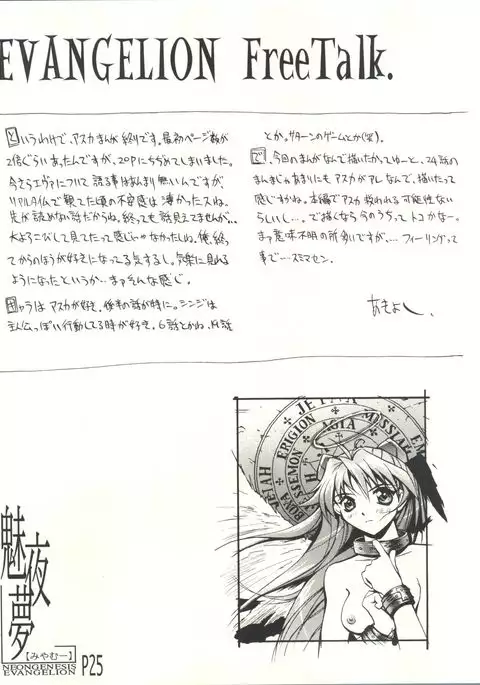 EVANGELION FreeTalk.
というわけで、アスカまんが終りです。最初ページ数が
2倍ぐらいあったんですが、20Pにちぢめてしまいました。
今さらエヴァについて語る事はあんまり無いんですが、
リアルタイムで観てた頃の不安感は凄かったスね。
先が読めない話だからね。終っても話見えてませんが...
大よろこびして見てたって感じじゃなかったしね。俺、終っ
てからのほうが好きになってる気するし。気楽に見れる
ようになったというか…まァそんな感じ。
キャラはアスカが好き。後半の話が特に。シンジは
主人公っぽい行動してる時が好き。6話とかね、19話
とか。サターンのゲームとか(笑)。
で、今回のまんがなんで描いたかってゆーと、24話の
まんまじゃあまりにもアスカがアレなんで、描いたって
感じですかね。本編でアスカ救われる可能性ない
らしいし...。で描くなら今のうちってトコかなー。
まァ意味不明の所多いですが.... フィーリングって
事で…スミマセン。
あきよし。
JEIAH ERIGION IETNA MESSIAH
BONA ESSEMON AGIA
魅夜夢
【みやむー】
NEONGENESIS
EVANGELION
P25